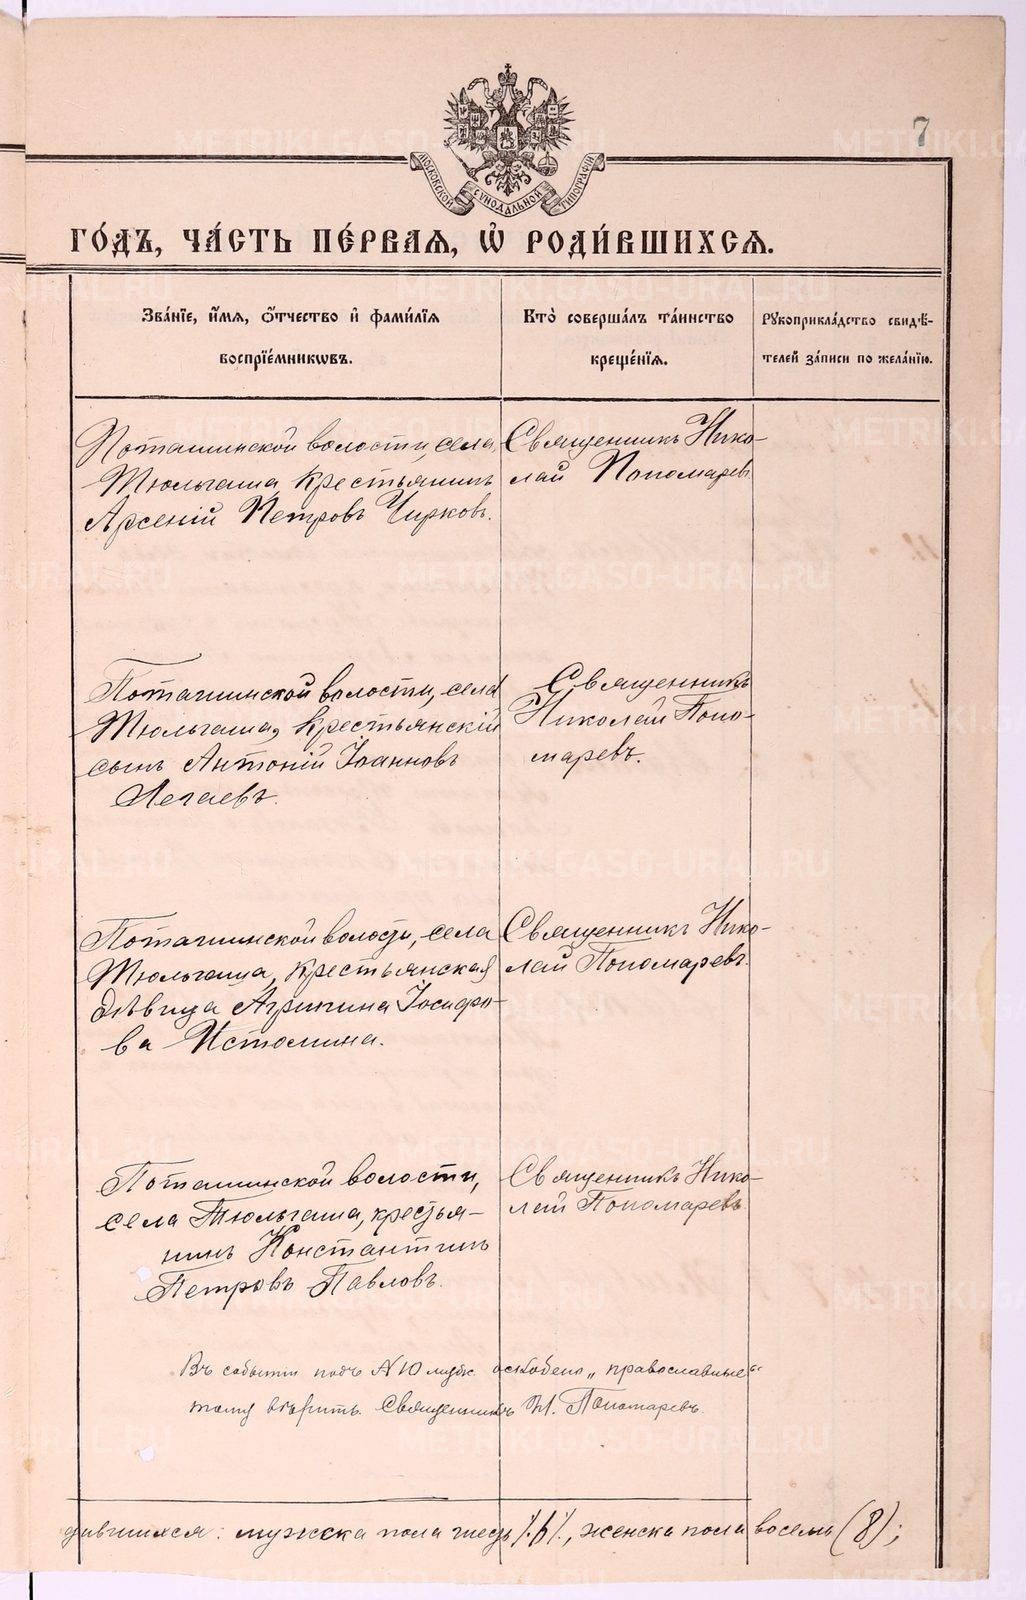 7
МОСКОВСКОЙ СѴНОДАЛЬНОЙ ТИПОГРАФІИ
ГО́ДЪ, ЧА́СТЬ ПЕ́РВАѦ, Ѡ҆ РОДИ́ВШИХСѦ.
Зва́нїе, и҆́мѧ, ѻ҆́тчество и҆ фами́лїѧ
воспрїе́мникѡвъ.
Кто̀ соверша́лъ та́инство
креще́нїѧ.
Рꙋкоприкла́дство свидѣ́-
телей за́писи по жела́нїю.
Поташинской волости, села
Тюльгаша, крестьянинъ
Арсеній Петровъ Чирковъ.
Священникъ Нико-
лай Пономаревъ
Поташинской волости, села
Тюльгаша, крестьянскій
сынъ Антоній Іоанновъ
Легаевъ.
Священникъ
Николай Поно-
маревъ.
Поташинской волости, села
Тюльгаша, крестьянская
дѣвица Агрипина Іосифо-
ва Истомина.
Священникъ Нико-
лай Пономаревъ.
Поташинской волости,
села Тюльгаша, крестья-
нинъ Константинъ
Петровъ Павловъ.
Священникъ Нико-
лай Пономаревъ
Въ событіи подъ N 10 оскоблено „православные“
тому вѣрить. Священникъ Н. Пономаревъ.
дившихся: мужска пола шесть /.6/., женска пола восемь (8);
METRIKI.GASO-URAL.RU